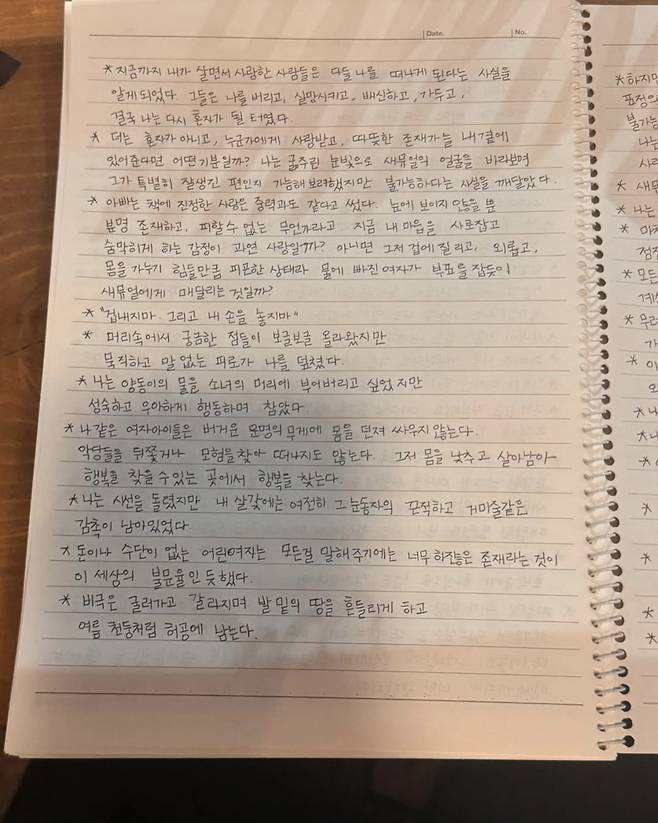 Date.
No.
* 지금까지 내가 살면서 사랑한 사람들은 다들 나를 떠나게 된다는 사실을
알게 되었다. 그들은 나를 버리고, 실망시키고, 배신하고, 가두고,
결국 나는 다시 혼자가 될 터였다.
* 더는 혼자가 아니고, 누군가에게 사랑받고, 따뜻한 존재가 늘 내 곁에
있어준다면 어떤 기분일까? 나는 굶주린 눈빛으로 새뮤얼의 얼굴을 바라보며
그가 특별히 잘생긴 편인지 가늠해보려했지만 불가능하다는 사실을 깨달았다.
* 아빠는 책에 진정한 사랑은 중력과도 같다고 썼다. 눈에 보이지 않을 뿐
분명 존재하고, 피할 수 없는 무언가라고. 지금 내 마음을 사로잡고
숨막히게 하는 감정이 과연 사랑일까? 아니면 그저 겁에 질리고, 외롭고,
몸을 가누기 힘들만큼 피곤한 상태라 물에 빠진 여자가 부표를 잡듯이
새뮤얼에게 매달리는 것일까?
* "겁내지마. 그리고 내 손을 놓지마"
* 머리속에서 궁금한 점들이 보글보글 올라왔지만
묵직하고 말 없는 피로가 나를 덮쳤다.
* 나는 양동이의 물을 소녀의 머리에 부어버리고 싶었지만
성숙하고 우아하게 행동하며 참았다.
* 나 같은 여자아이들은 버거운 운명의 무게에 몸을 던져 싸우지 않는다.
악당들을 뒤쫓거나 모험을 찾아 떠나지도 않는다. 그저 몸을 낮추고 살아남아
행복을 찾을 수 있는 곳에서 행복을 찾는다.
* 나는 시선을 돌렸지만 내 살갗에는 여전히 그 눈동자의 끈적하고 거미줄같은
감촉이 남아있었다
* 돈이나 수단이 없는 어린여자는 모든걸 말해주기에는 너무 하찮은 존재라는 것이
이 세상의 불문율인 듯했다.
* 비극은 굴러가고 갈라지며 발 밑의 땅을 흔들리게 하고
여름 천둥처럼 허공에 남는다.
* 하지만
표정으
불가능
나는
사라
* 새뮤
* 나는
* 마치
점점
* 모든
* 무러
가
* 이
외
* 나
* 나
*
*
*
*
*